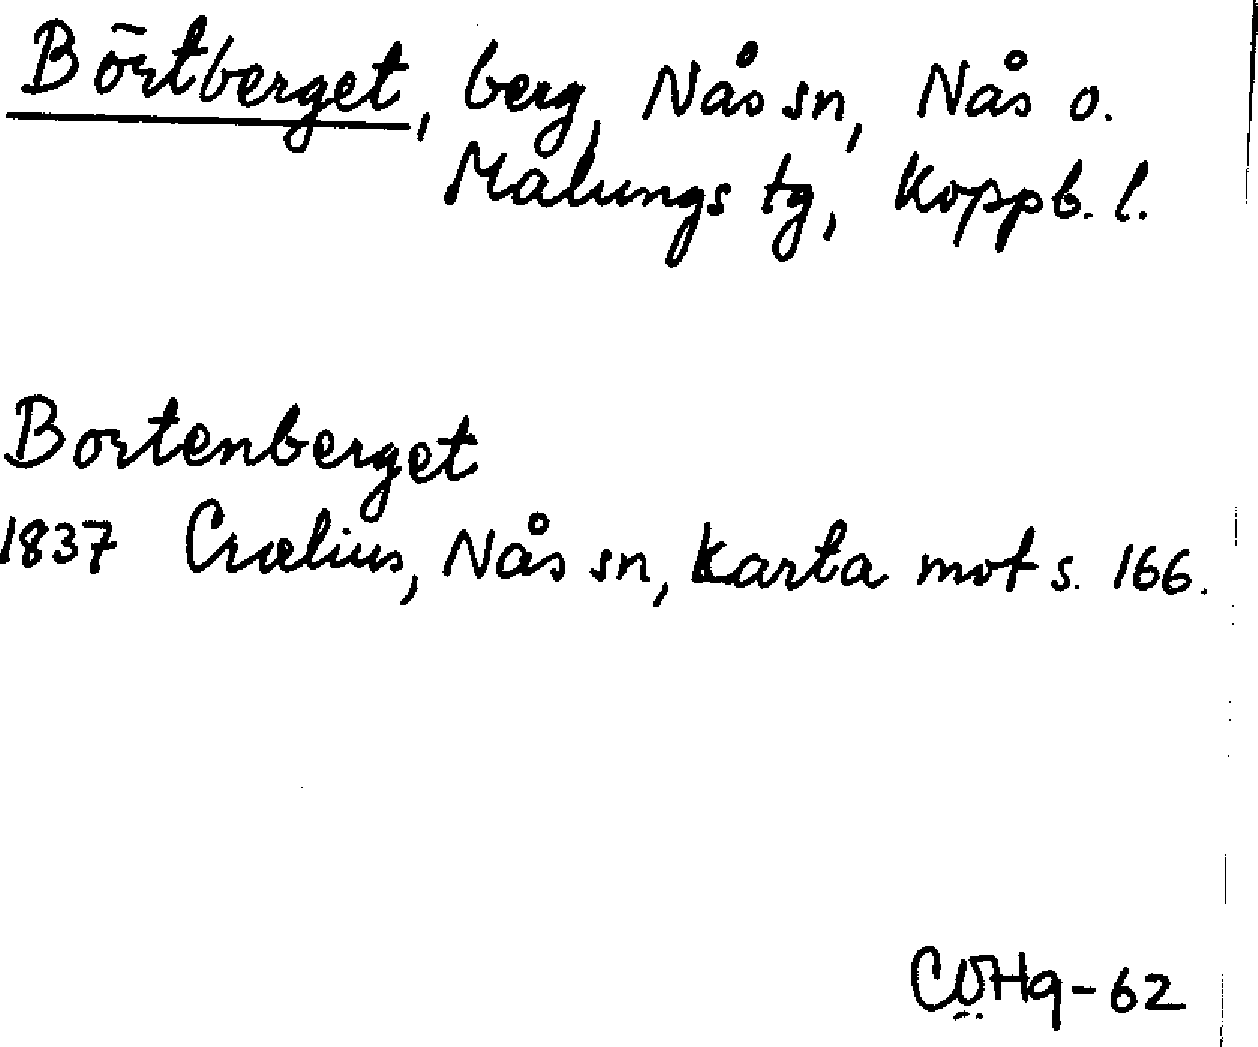 Börtberget, berg, Nås sn, Nås o.
Malungs tg, Koppb. l.
Bortenberget
1837 Crælius, Nås sn, Karta mot s. 166.